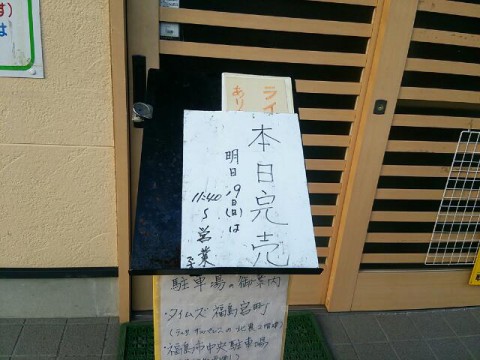 す)
は
ライ
あり
本日完売
明日、9日(日)は
11:40〜営業
駐車場の御案内
・タイムズ福島宮町
・福島市中央駐車場